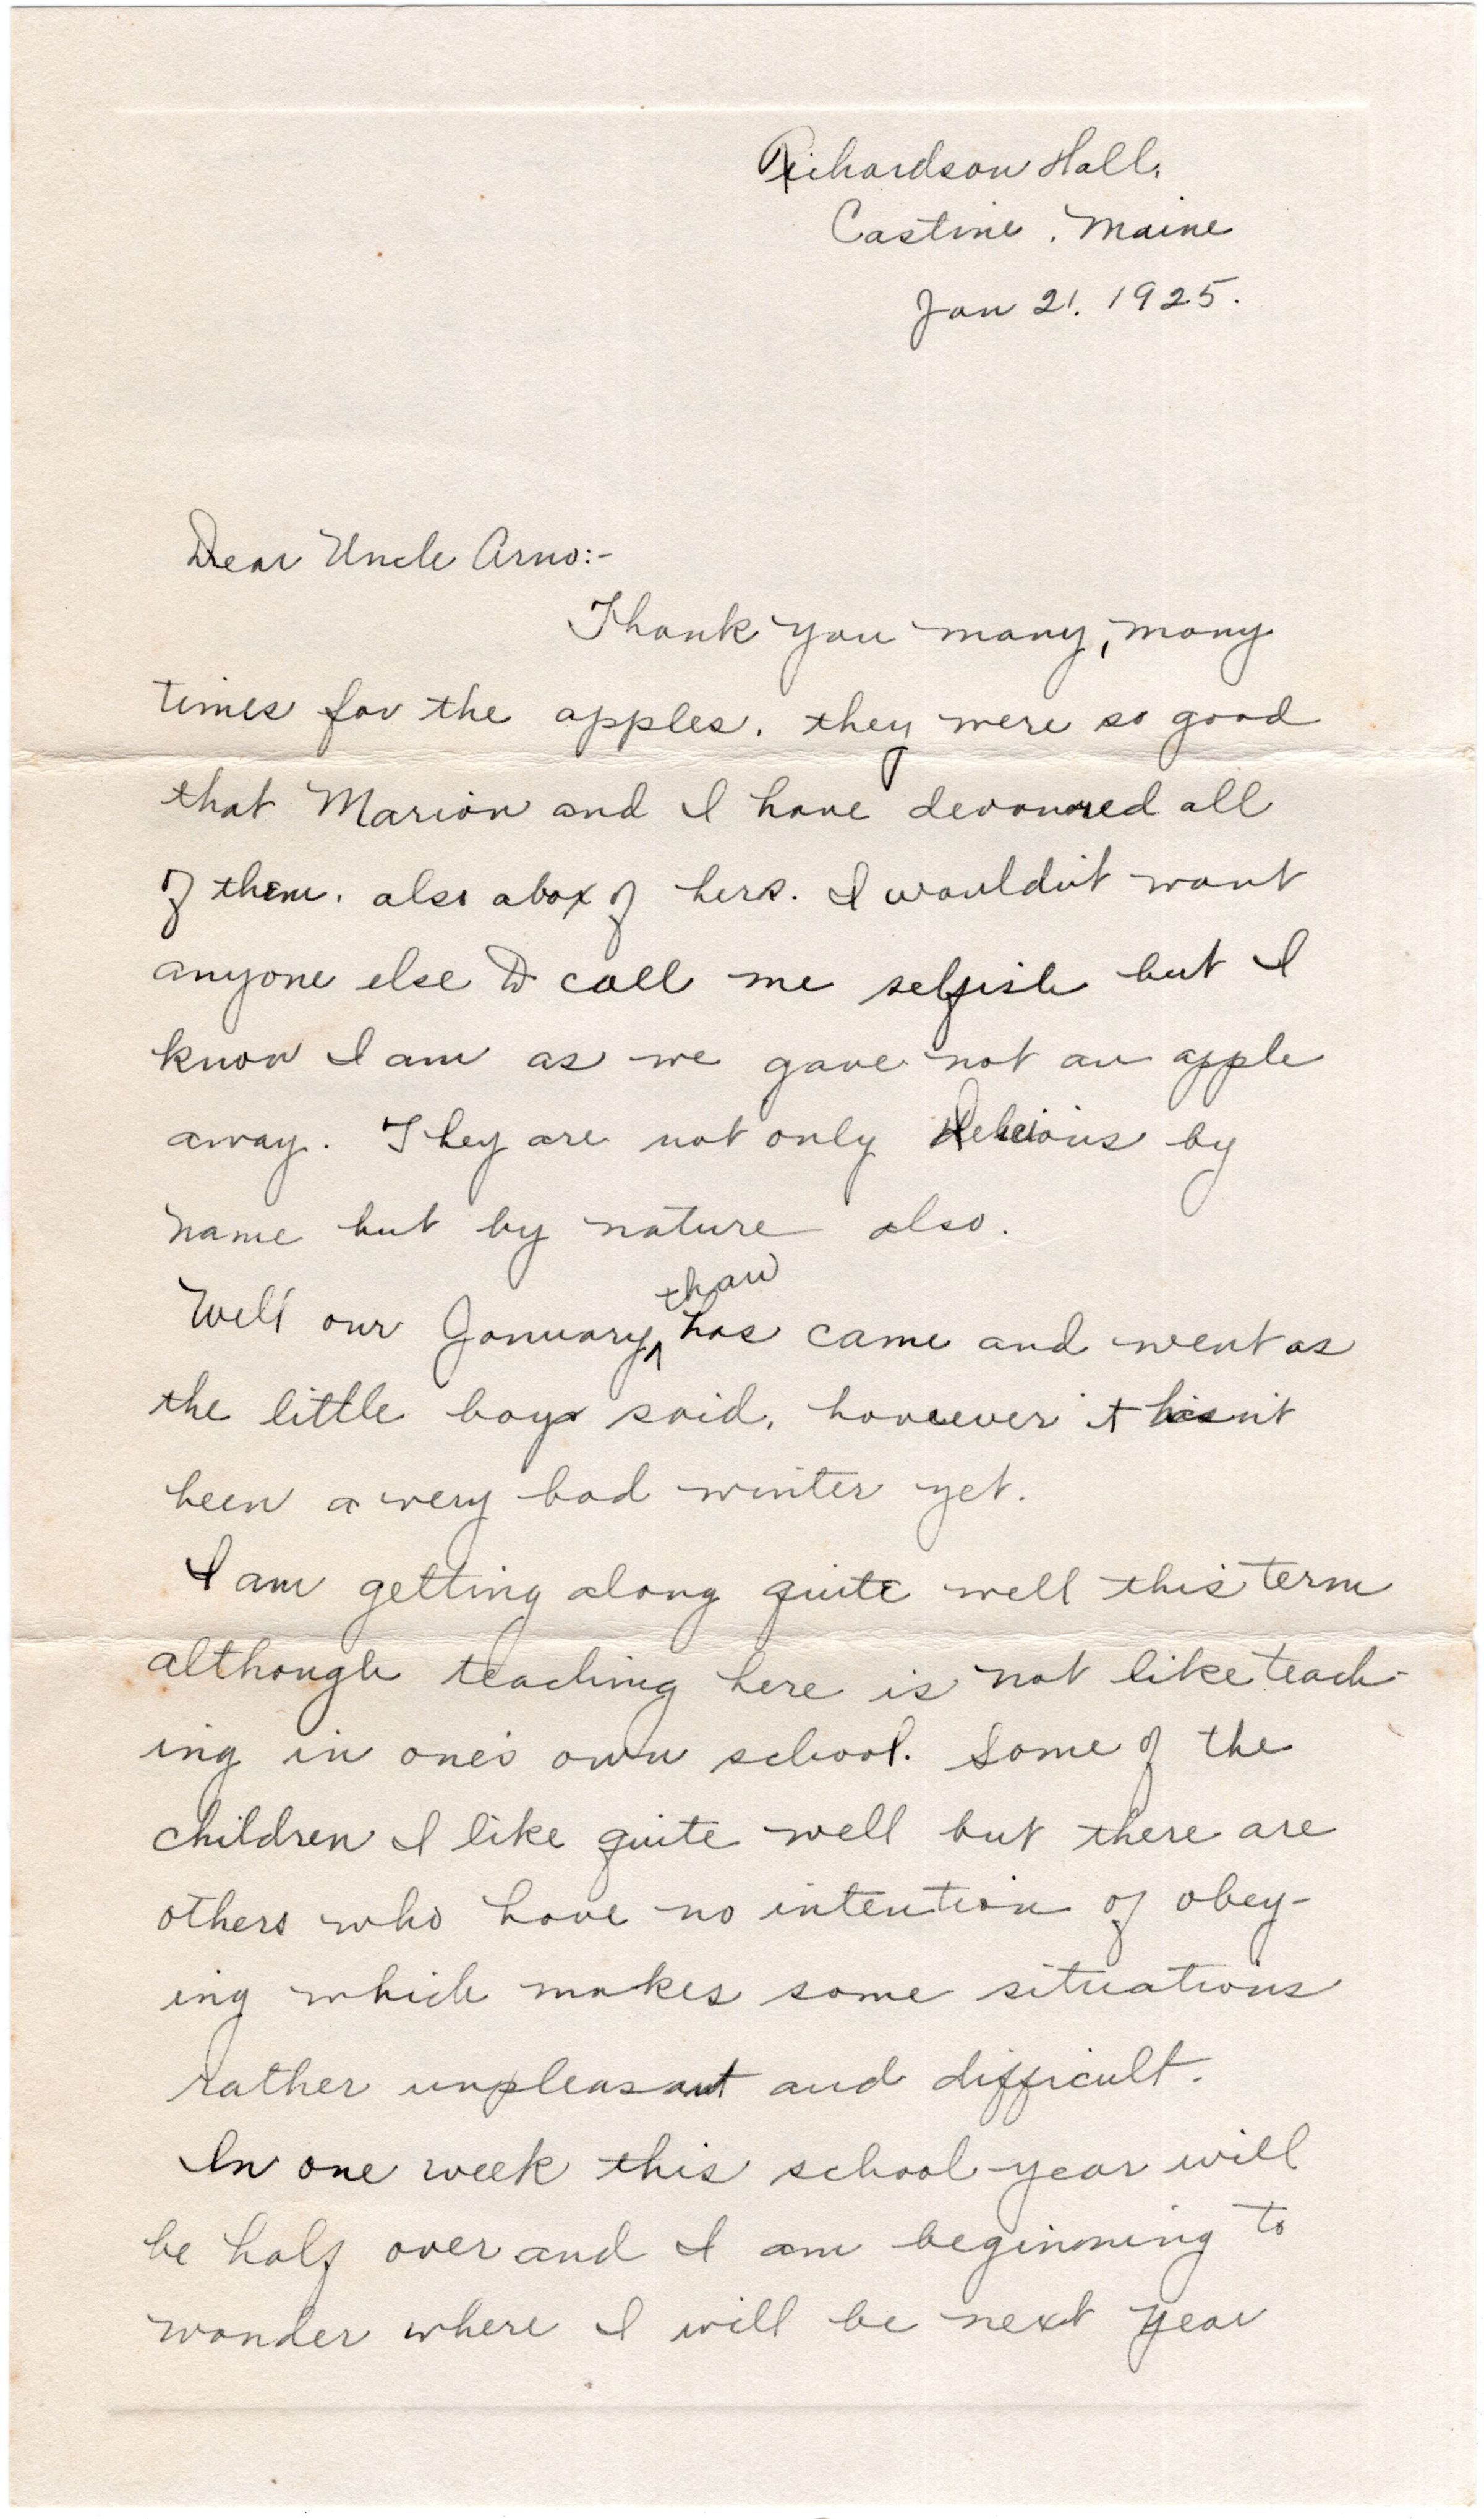 Richardson Hall.
Castine, Maine
Jan 21. 1925.
Dear Uncle Arno:-
Thank you many, many
times for the apples. they were so good
that Marion and I have devoured all
of them. also a box of hers. I wouldn't want
anyone else to call me selfish but I
know I am as we gave not an apple
away. They are not only Delicious by
name but by nature also.
Well our January ^thaw has came and went as
the little boys said. however it hasn't
been a very bad winter yet.
I am getting along quite well this term
although teaching here is not like teach-
ing in one's own school. Some of the
children I like quite well but there are
others who have no intention of obey-
ing which makes some situations
rather unpleasant and difficult.
In one week this school year will
be half over and I am beginning to
wonder where I will be next year